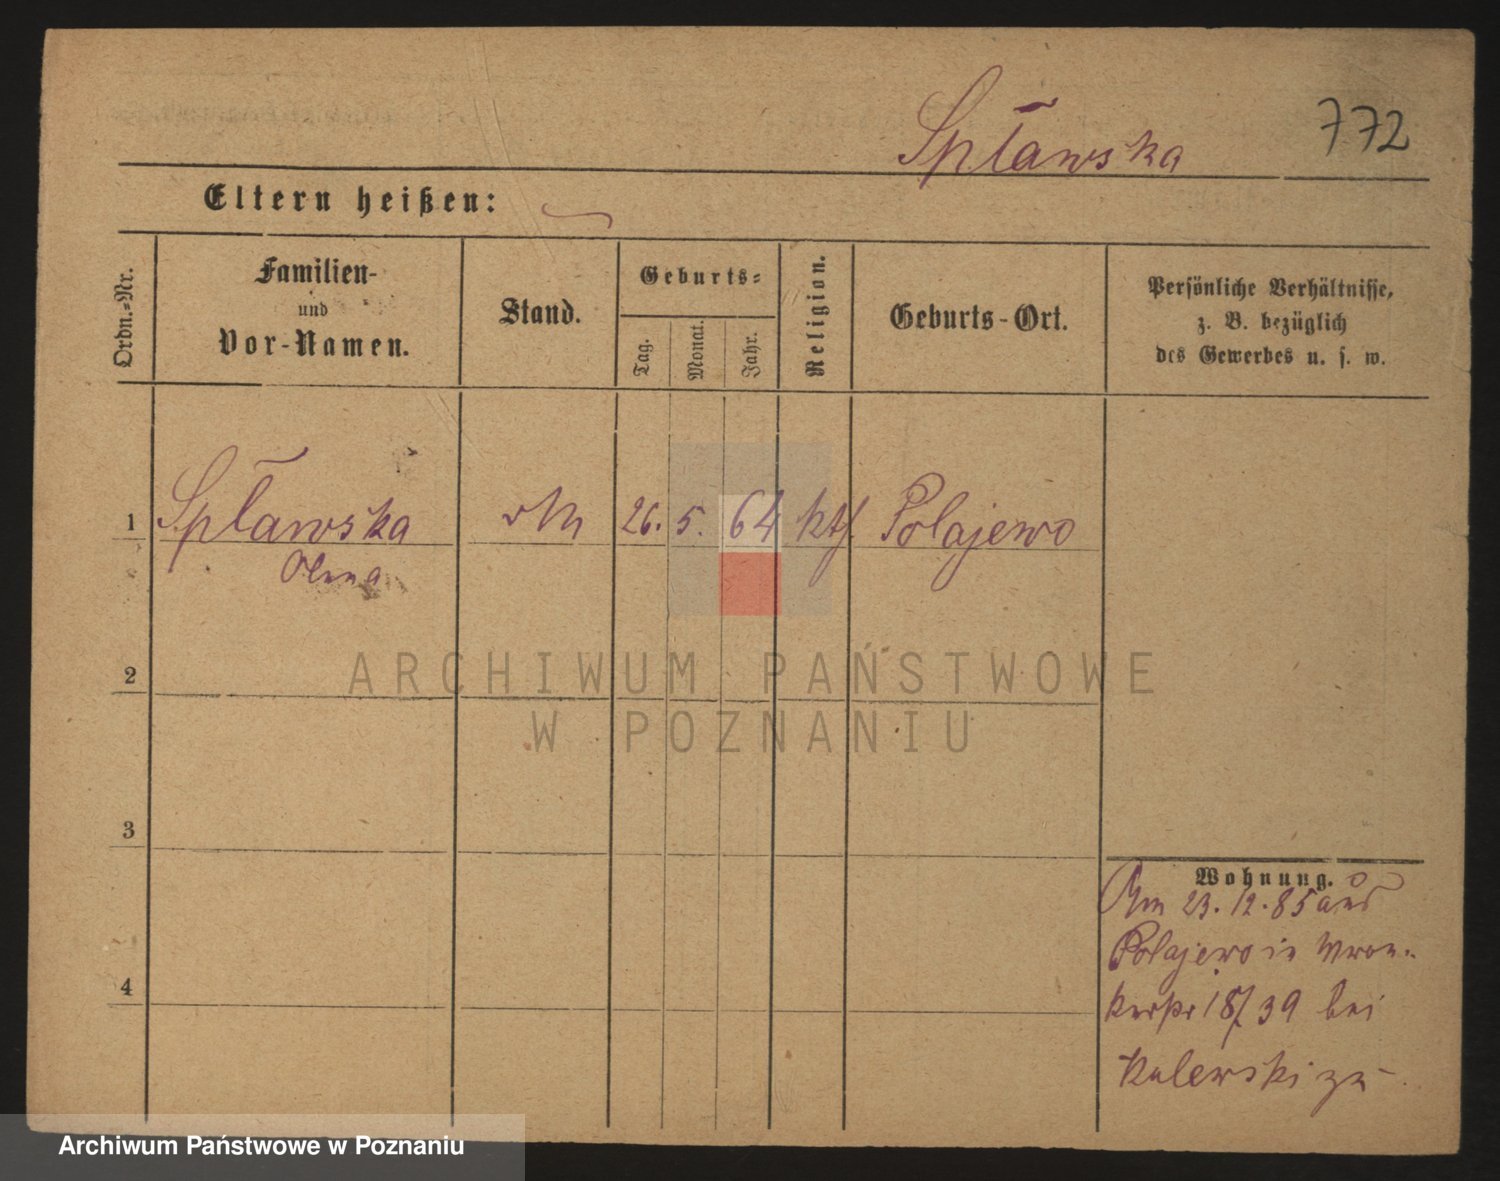 Spławska 772
Eltern heißen:
Ordn.-Nr.
Familien-
und
Vor-Namen.
Stand.
Geburts-
Tag.
Monat.
Jahr.
Religion.
Geburts-Ort.
Persönliche Verhältnisse,
z. B. bezüglich
des Gewerbes u. s. w.
1 Spławska 26. 5. 64 kth. Polajewo
2
ARCHIWUM PAŃSTWOWE
W POZNANIU
3
4
Wohnung.
Am 23. 12. 85 aus
Polajewo in Wron-
kerstr 18/39 bei
zu
Archiwum Państwowe w Poznaniu